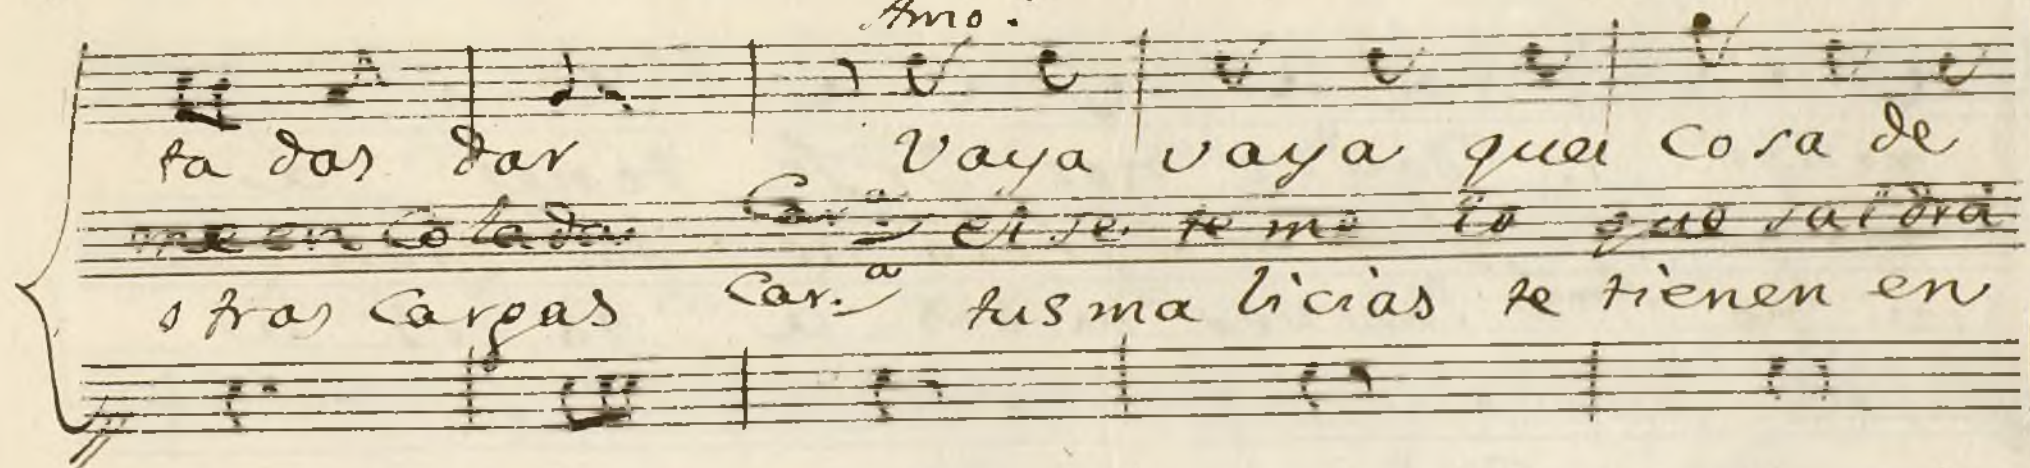 Amo.
ta das dar Vaya vaya que cosa de
me en cola da Car.ª el se te me lo que saldrá
stras cargas Car.ª tus ma licias te tienen en